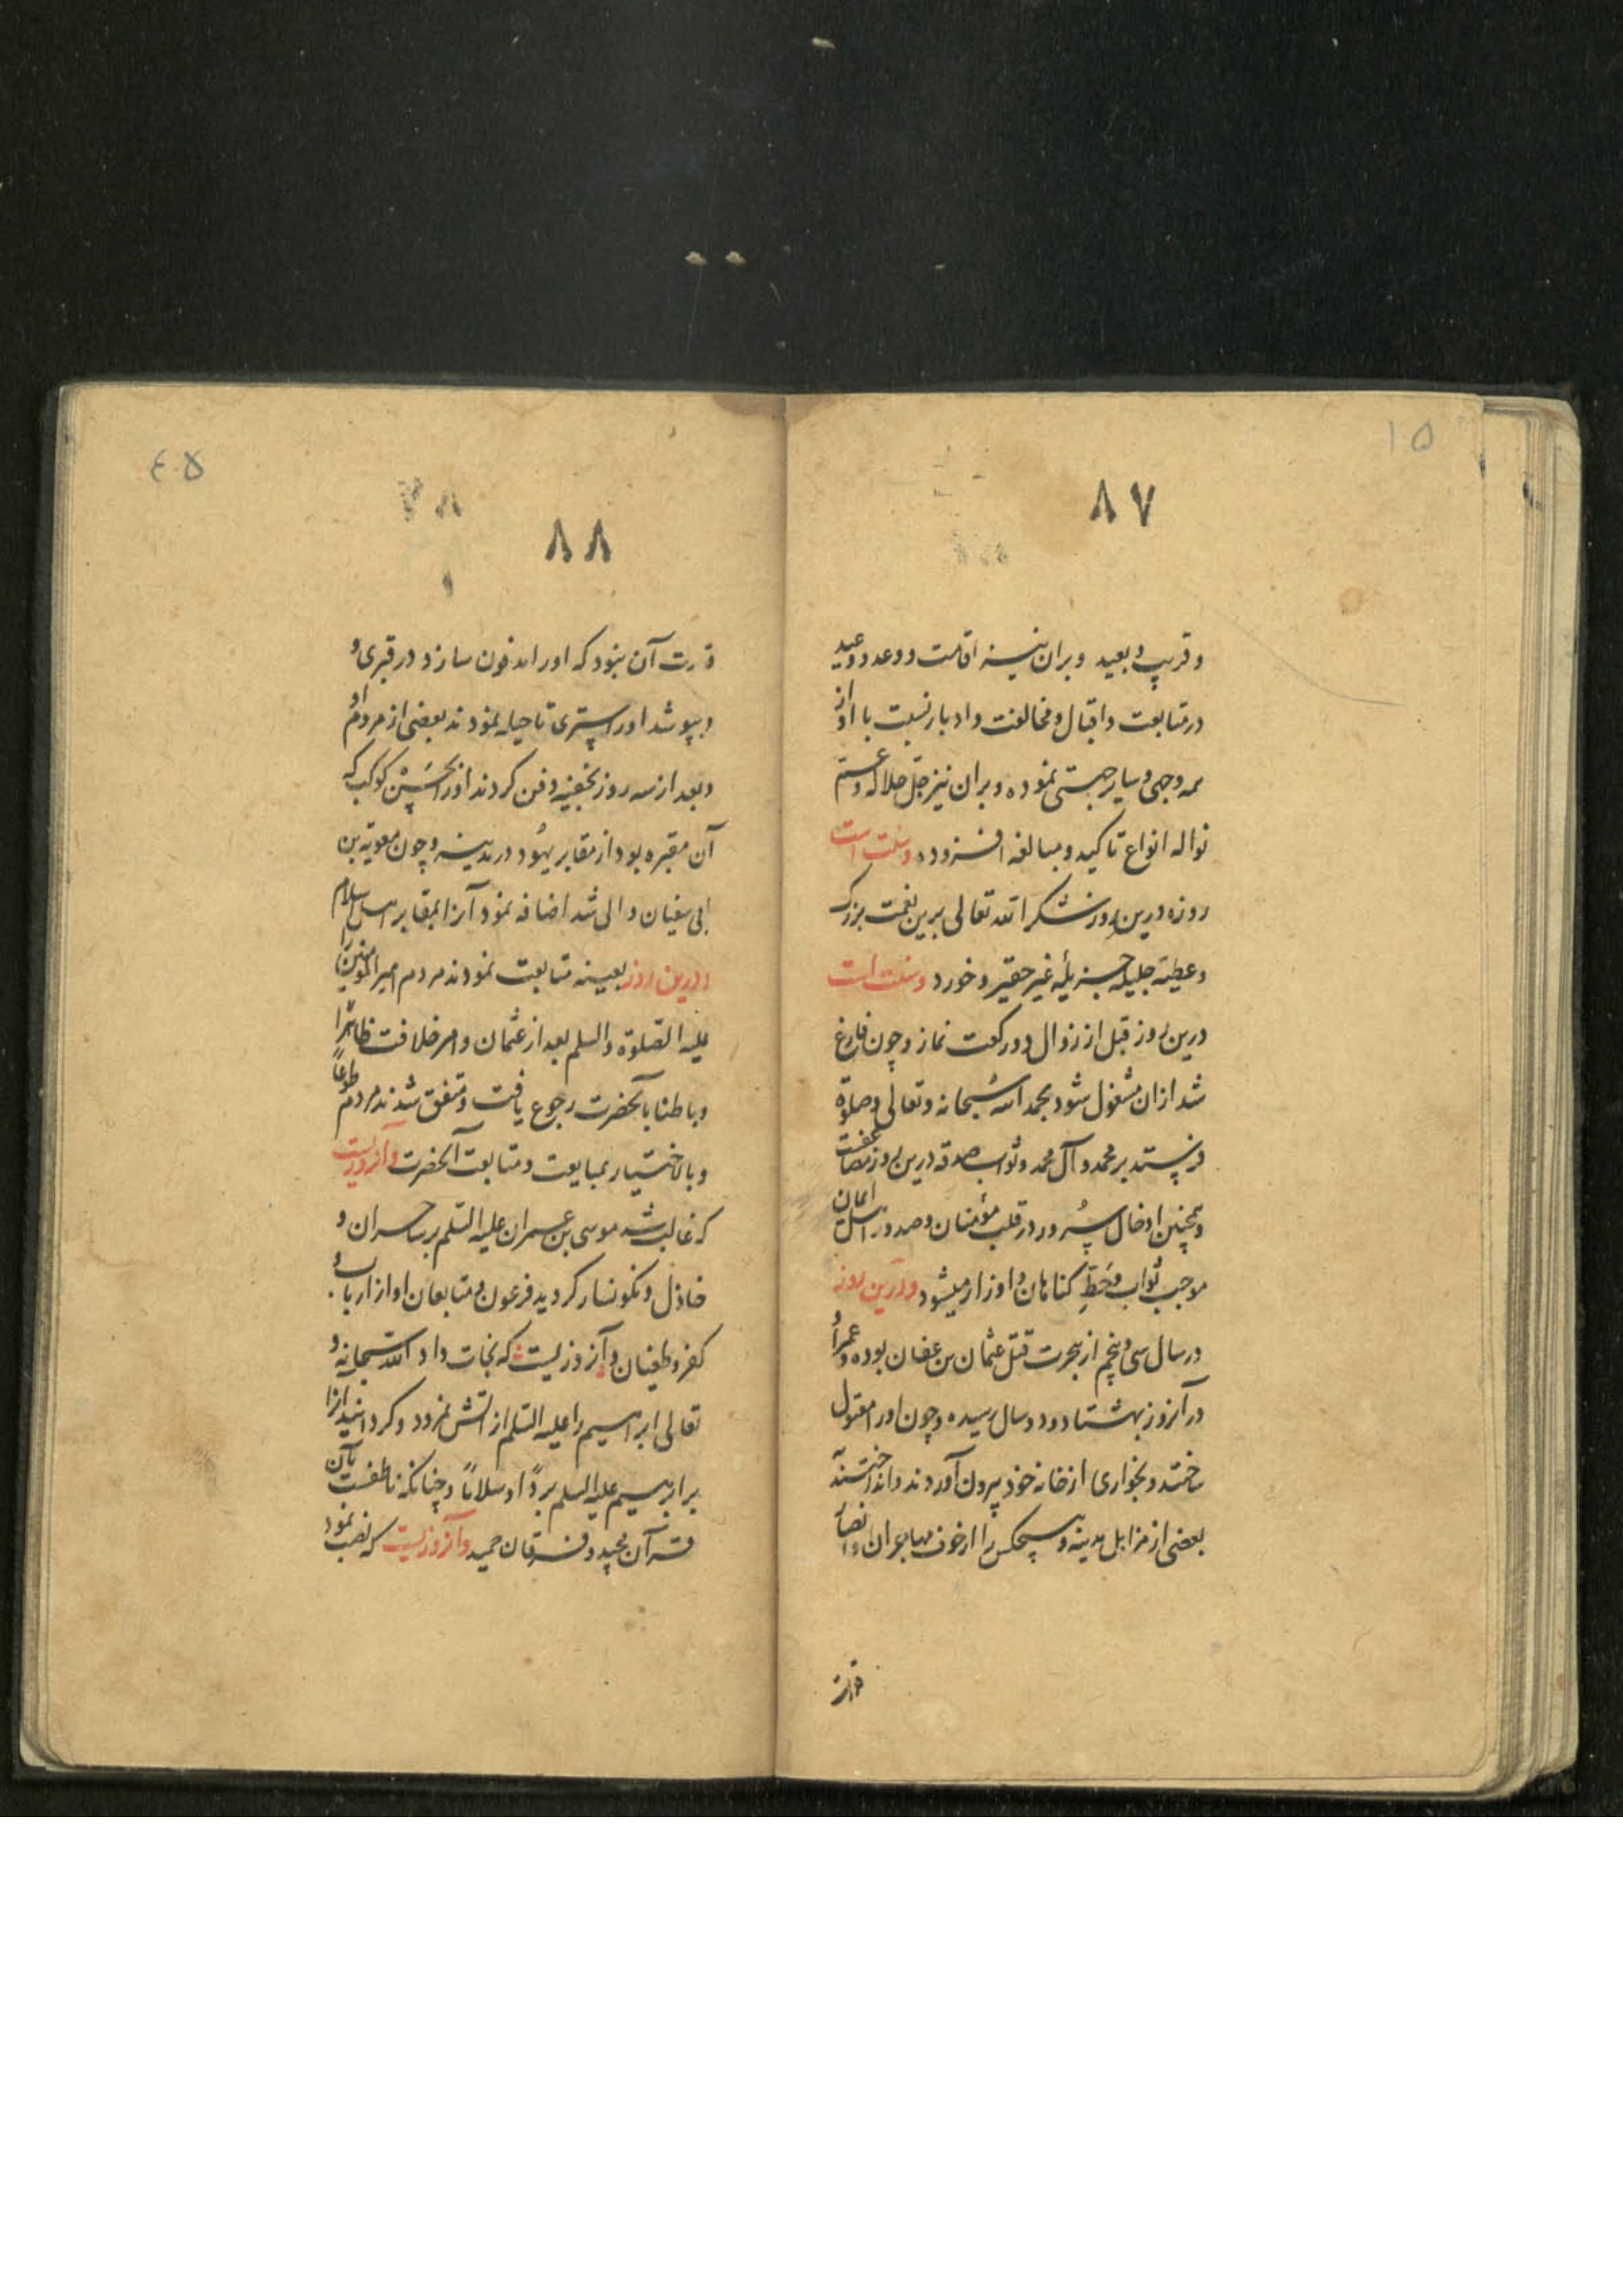 ۱۵
۸۷
و قریب و بعید و بران نیسنه اقامت و وعد و وعید
در متابعت و اقبال و مخالفت و ادبار نسبت با او از
همه وجهی و سایر جهتی نموده و بران نیز جل جلاله و عم
نواله انواع تاکید و مبالغه افزوده و سنت است
روزه درین روز شکر الله تعالی برین نعمت بزرک
و عطیه جلیله جزیله غیر حقیر و خورد و سنت است
درین روز قبل از زوال دو رکعت نماز و چون فارغ
شد ازان مشغول شود بحمد الله سبحانه و تعالی و صلوة
فرستد بر محمد و آل محمد و ثواب صدقه درین روز مضاعفست
و همچنین ادخال سرور در قلب مؤمنان و صدور اهل ایمان
موجب ثواب و حط کناهان و اوزار میشود و درین روز
در سال سی و پنجم از هجرت قتل عثمان بن عفان بوده و عمر او
در آنروز بهشتاد و دو سال رسیده و چون او را مقتول
ساختند و بخواری از خانه خود بیرون آوردند و انداختند بر
بعضی از مزابل مدینه و هیچکس را از خوف مهاجران و انصار
قدرت
٤٥
۸۸
قدرت آن نبود که او را مدفون سازد در قبری و
و بپوشد او را بستری تا حیله نمودند بعضی از مردم او
و بعد از سه روز بخفیه دفن کردند او را بحش کوکب که
آن مقبره بود از مقابر یهود در مدینه و چون معویة بن
ابی سفیان والی شد اضافه نمود آنرا بمقابر اهل اسلام
و درین روز بعینه متابعت نمودند مردم امیرالمؤمنین را
علیه الصلوة والسلم بعد از عثمان و امر خلافت ظاهرا
و باطنا بآنحضرت رجوع یافت و متفق شدند مردم طوعاً
و بالاختیار بمبایعت و متابعت آنحضرت و آنروزیست
که غالب شد موسی بن عمران علیه السلم بر ساحران و
خاذل و نکونسار کردید فرعون و متابعان او از ارباب
کفر و طغیان و آنروزیست که نجات داد الله سبحانه و
تعالی ابراهیم را علیه السلم از اتش نمرود و کردانید انرا
بر ابرهیم علیه السلم برداً و سلاماً و چنانکه ناطقست بآن
قرآن مجید و فرقان حمید و آنروزیست که نصب نمود